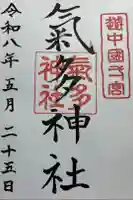 越中國一宮
氣多神社
氣多神社
令和八年五月二十五日